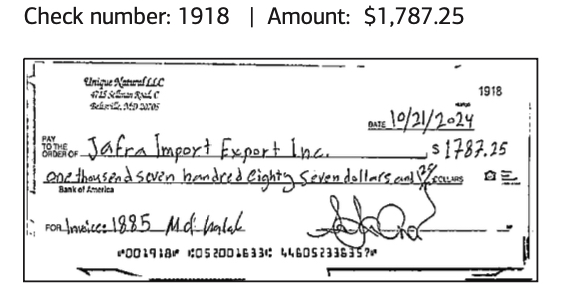 Check number: 1918 | Amount: $1,787.25
Unique Natural LLC
4715 Sellman Road, C
Beltsville, MD 20705
1918
DATE 10/21/2024
PAY TO THE ORDER OF Jafra Import Export Inc. $ 1787.25
one thousend seven handred eighty seven dollars and 25 DOLLARS
Bank of America
FOR Invoice: 1885 Md halal
⑈001918⑈ ⑆052001633⑆ 446052336357⑈